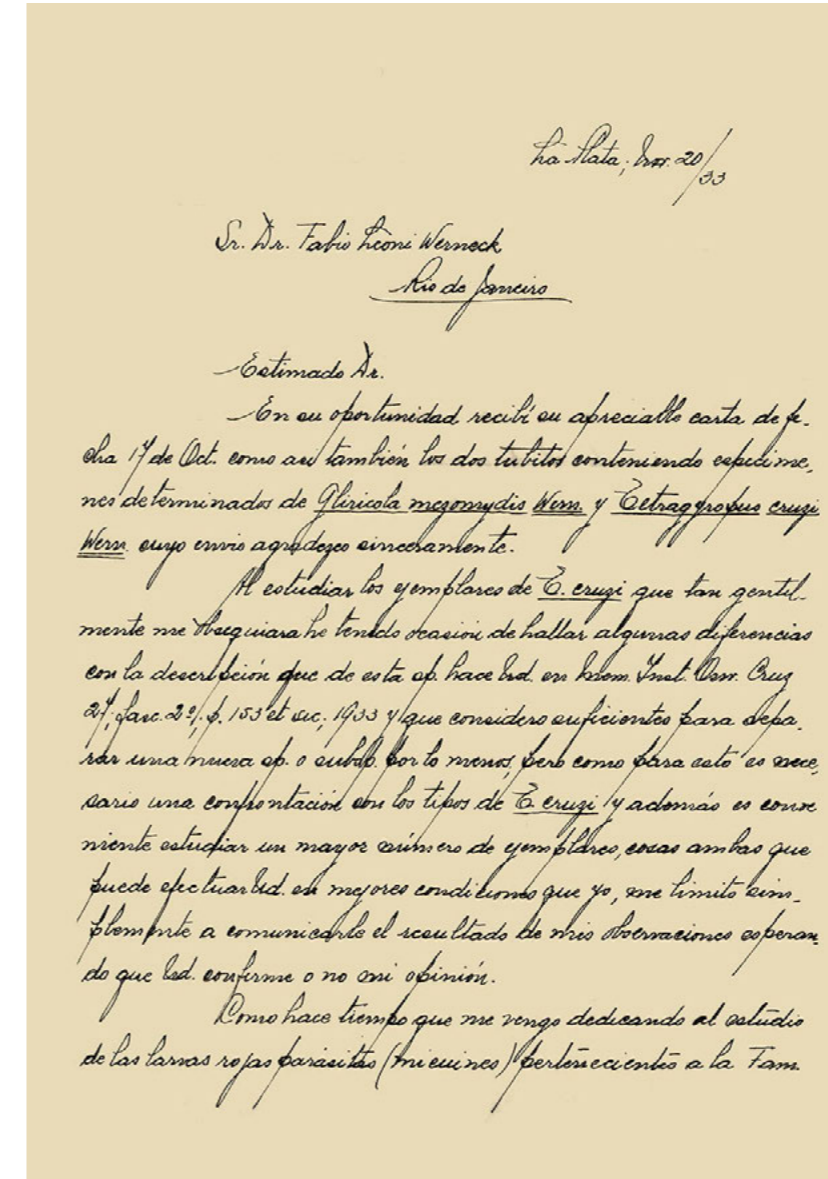 La Plata, Nov. 20/33
Sr. Dr. Fabio Leoni Werneck
Rio de Janeiro
Estimado Dr.
En su oportunidad recibí su apreciable carta de fe-
cha 17 de Oct. como asi también los dos tubitos conteniendo especime,
nes determinados de Gliricola mezomydis Wern. y Tetragyropus cruzi
Wern. cuyo envio agradezco sinceramente.
Al estudiar los ejemplares de T. cruzi que tan gentil-
mente me obsequiara he tenido ocasión de hallar algunas diferencias
con la descripción que de esta sp. hace Usd. en Mem. Inst. Osw. Cruz
27, fasc. 2º, p. 153 et sic, 1933 y que considero suficientes para sepa-
rar una nueva sp. o subsp. por lo menos, pero como para esto es nece-
sario una confrontación con los tipos de T. cruzi y además es conve
niente estudiar un mayor número de ejemplares, cosas ambas que
puede efectuar Ud. en mejores condiciones que yo, me limito sim-
plemente a comunicarle el resultado de mis observaciones esperan-
do que Usd. confirme o no mi opinión.
Como hace tiempo que me vengo dedicando al estudio
de las larvas rojas parásitas (micuines) pertenecientes a la Fam.